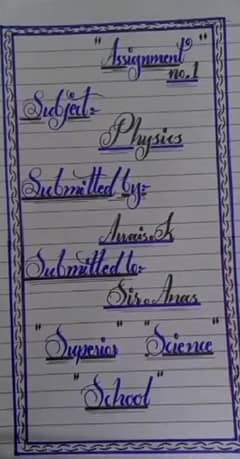 "Assignment"
no.1
Subject:
Physics
Submitted by:
Awais.K
Submitted to:
Sir.Anas
"Superior" "Science"
"School"